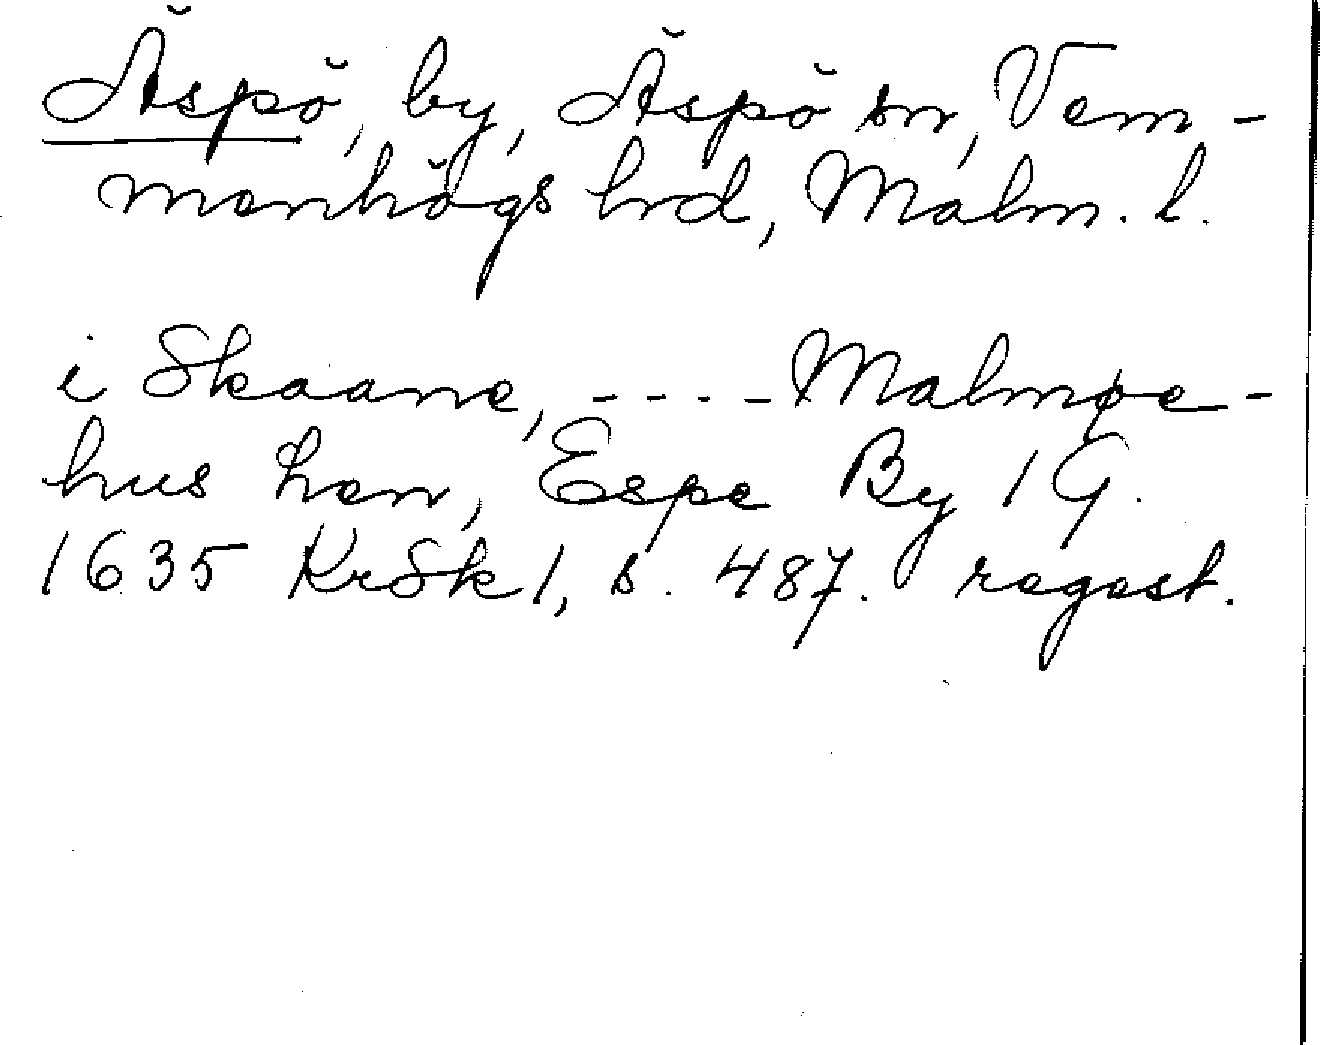 Äspö, by, Äspö sn, Vem-
menhögs hrd, Malm. l.
i Skaane, ---- Malmøe-
hus Len, Espe By 1 G.
1635 KrSk 1, s. 487. regest.